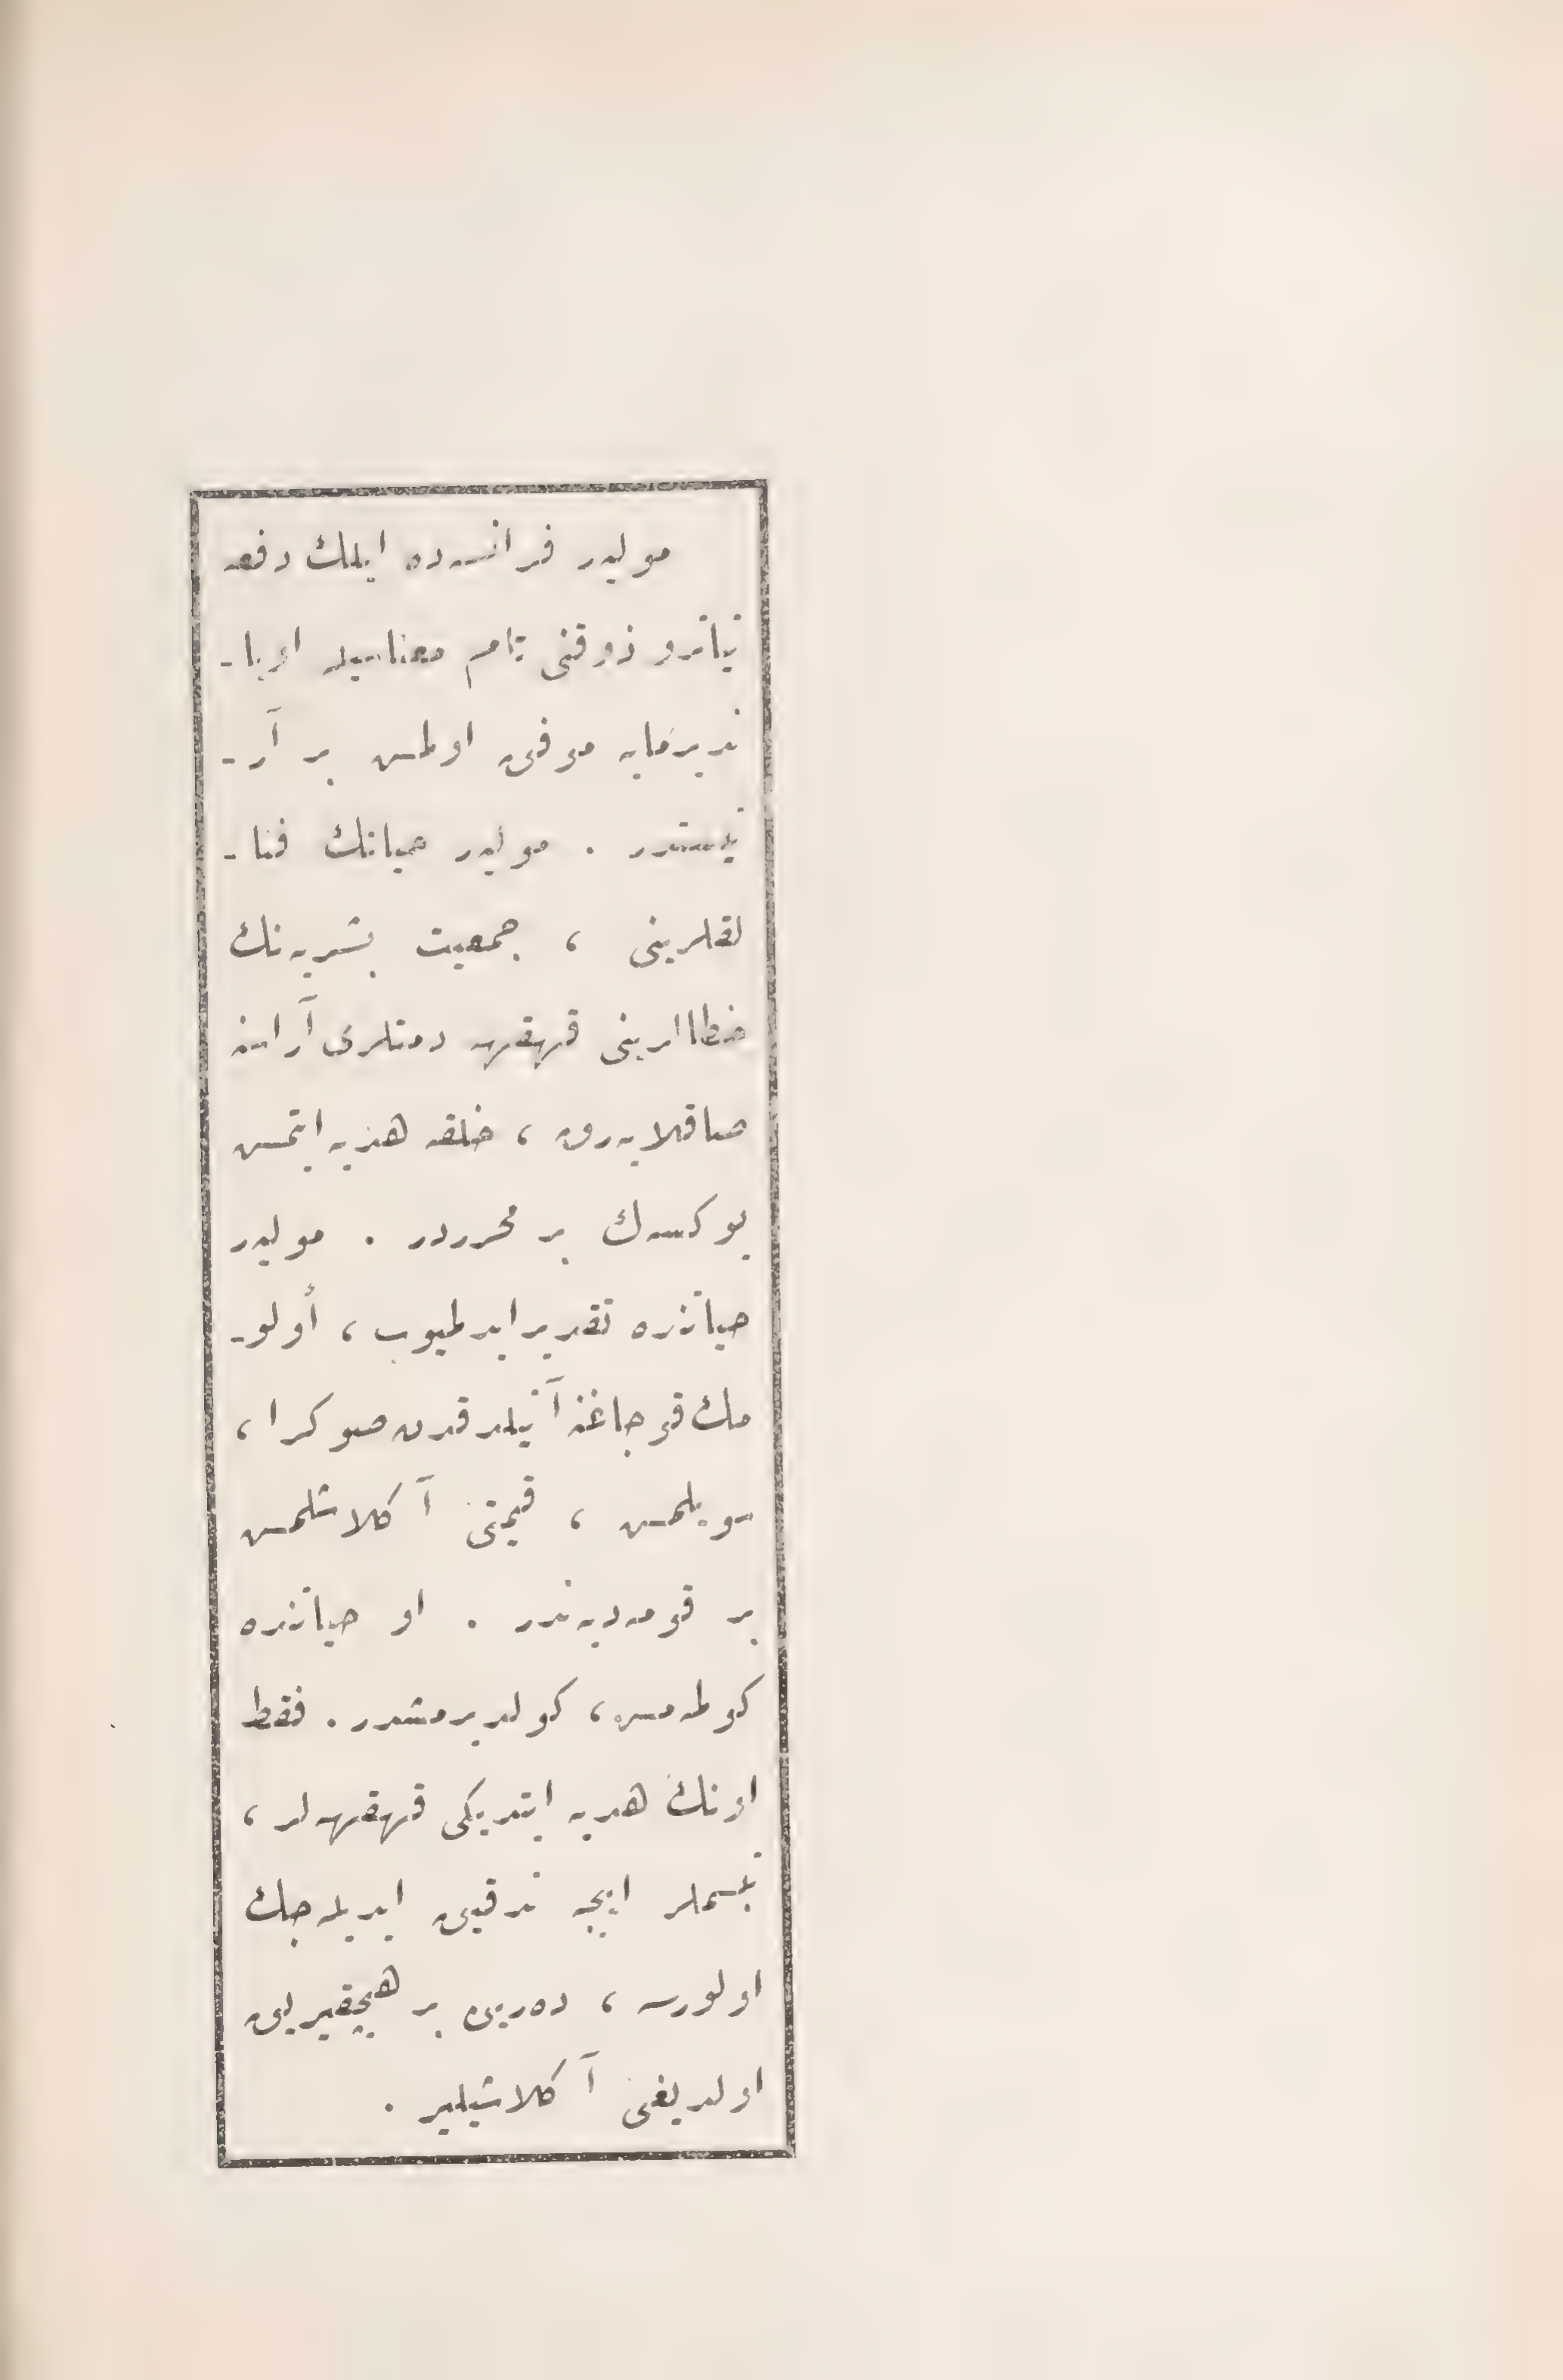 موليه‌ر فرانسه‌ده ايلك دفعه
تياترو ذوقنى تام معناسيله اويا-
نديرمايه موفق اولمش بر آر-
تيستدر . موليه‌ر حياتك فنا-
لقلرينى ، جمعيت بشريه‌نك
خطالرينى قهقهه دمتلرى آراسنه
صاقلايه‌رق ، خلقه هديه ايتمش
يوكسك بر محرردر . موليه‌ر
حياتنده تقدير ايدلميوب ، أولو-
مك قوجاغنه آتيلدقدن صوكرا ،
سويلمش ، قيمتى آكلاشلمش
بر قومه‌ديه‌ندر . او حياتنده
كولمه‌مش ، كولديرمشدر . فقط
اونك هديه ايتديكى قهقهه‌لر ،
تبسملر اييجه تدقيق ايديله‌جك
اولورسه ، ده‌رين بر هيچقيريق
اولديغى آكلاشيلير .